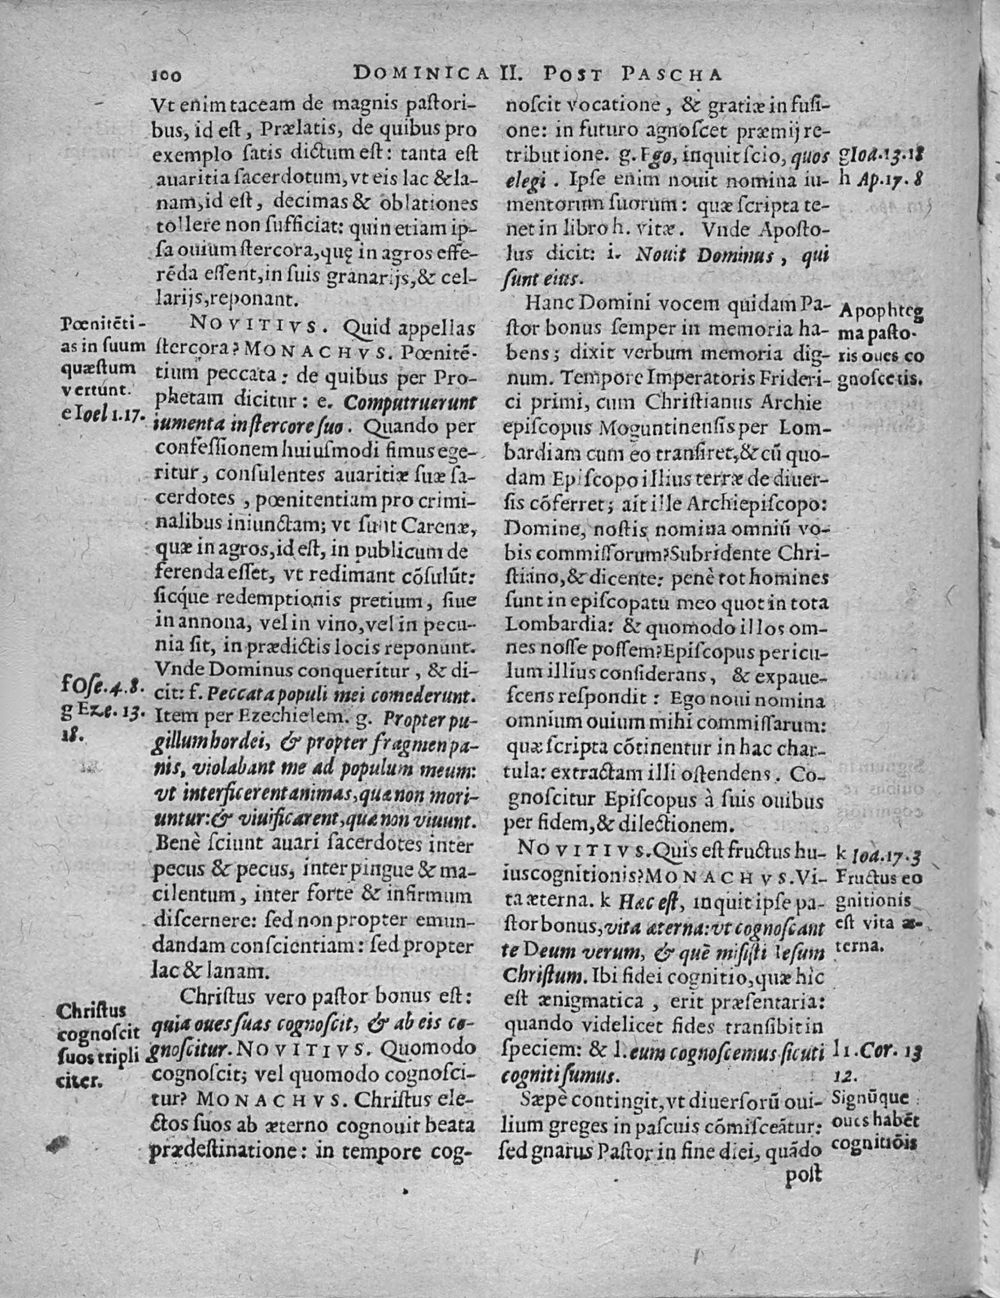 100 DOMINICA II. POST PASCHA
Vt enim taceam de magnis pastori-
bus, id est, Prælatis, de quibus pro
exemplo satis dictum est: tanta est
auaritia sacerdotum, vt eis lac & la-
nam, id est, decimas & oblationes
tollere non sufficiat: quin etiam ip-
sa ouium stercora, quę in agros effe-
rēda essent, in suis granarijs, & cel-
larijs, reponant.
NOVITIVS. Quid appellas
stercora? MONACHVS. Pœnitē-
tium peccata: de quibus per Pro-
phetam dicitur: e. Computruerunt
iumenta in stercore suo. Quando per
confessionem huiusmodi fimus ege-
ritur, consulentes auaritiæ suæ sa-
cerdotes, pœnitentiam pro crimi-
nalibus iniunctam; vt sunt Carenæ,
quæ in agros, id est, in publicum de
ferenda esset, vt redimant cōsulūt:
sicque redemptionis pretium, siue
in annona, vel in vino, vel in pecu-
nia sit, in prædictis locis reponunt.
Vnde Dominus conqueritur, & di-
cit: f. Peccata populi mei comederunt.
Item per Ezechielem. g. Propter pu-
gillum hordei, & propter fragmen pa-
nis, violabant me ad populum meum:
vt interficerent animas, quæ non mori-
untur: & viuificarent, quæ non viuunt.
Benè sciunt auari sacerdotes inter
pecus & pecus, inter pingue & ma-
cilentum, inter forte & infirmum
discernere: sed non propter emun-
dandam conscientiam: sed propter
lac & lanam.
Christus vero pastor bonus est:
quia oues suas cognoscit, & ab eis co-
gnoscitur. NOVITIVS. Quomodo
cognoscit; vel quomodo cognosci-
tur? MONACHVS. Christus ele-
ctos suos ab æterno cognouit beata
prædestinatione: in tempore cog-
Pœnitēti-
as in suum
quæstum
vertunt.
e Ioel 1.17.
f Ose. 4. 8.
g Eze. 13.
18.
Christus
cognoscit
suos tripli
citer.
noscit vocatione, & gratiæ infusi-
one: in futuro agnoscet præmij re-
tributione. g. Ego, inquit scio, quos
elegi. Ipse enim nouit nomina iu-
mentorum suorum: quæ scripta te-
net in libro h. vitæ. Vnde Aposto-
lus dicit: i. Nouit Dominus, qui
sunt eius.
Hanc Domini vocem quidam Pa-
stor bonus semper in memoria ha-
bens; dixit verbum memoria dig-
num. Tempore Imperatoris Frideri-
ci primi, cum Christianus Archie
episcopus Moguntinensis per Lom-
bardiam cum eo transiret, & cū quo-
dam Episcopo illius terræ de diuer-
sis cōferret; ait ille Archiepiscopo:
Domine, nostis nomina omniū vo-
bis commissorum? Subridente Chri-
stiano, & dicente: penè tot homines
sunt in episcopatu meo quot in tota
Lombardia: & quomodo illos om-
nes nosse possem? Episcopus pericu-
lum illius considerans, & expaue-
scens respondit: Ego noui nomina
omnium ouium mihi commissarum:
quæ scripta cōtinentur in hac char-
tula: extractam illi ostendens. Co-
gnoscitur Episcopus à suis ouibus
per fidem, & dilectionem.
NOVITIVS. Quis est fructus hu-
ius cognitionis? MONACHVS. Vi-
ta æterna. k Hæc est, inquit ipse pa-
stor bonus, vita æterna: vt cognoscant
te Deum verum, & quē misisti Iesum
Christum. Ibi fidei cognitio, quæ hic
est ænigmatica, erit præsentaria:
quando videlicet fides transibit in
speciem: & l. eum cognoscemus sicuti
cogniti sumus.
Sæpè contingit, vt diuersorū oui-
lium greges in pascuis cōmisceātur:
sed gnarus Pastor in fine diei, quādo
post
g Ioā. 13. 18
h Ap. 17. 8
Apophteg
ma pasto-
ris oues co
gnoscētis.
k Ioā. 17. 3
Fructus co
gnitionis
est vita æ-
terna.
l 1. Cor. 13
12.
Signūque
oues habēt
cognitiōis